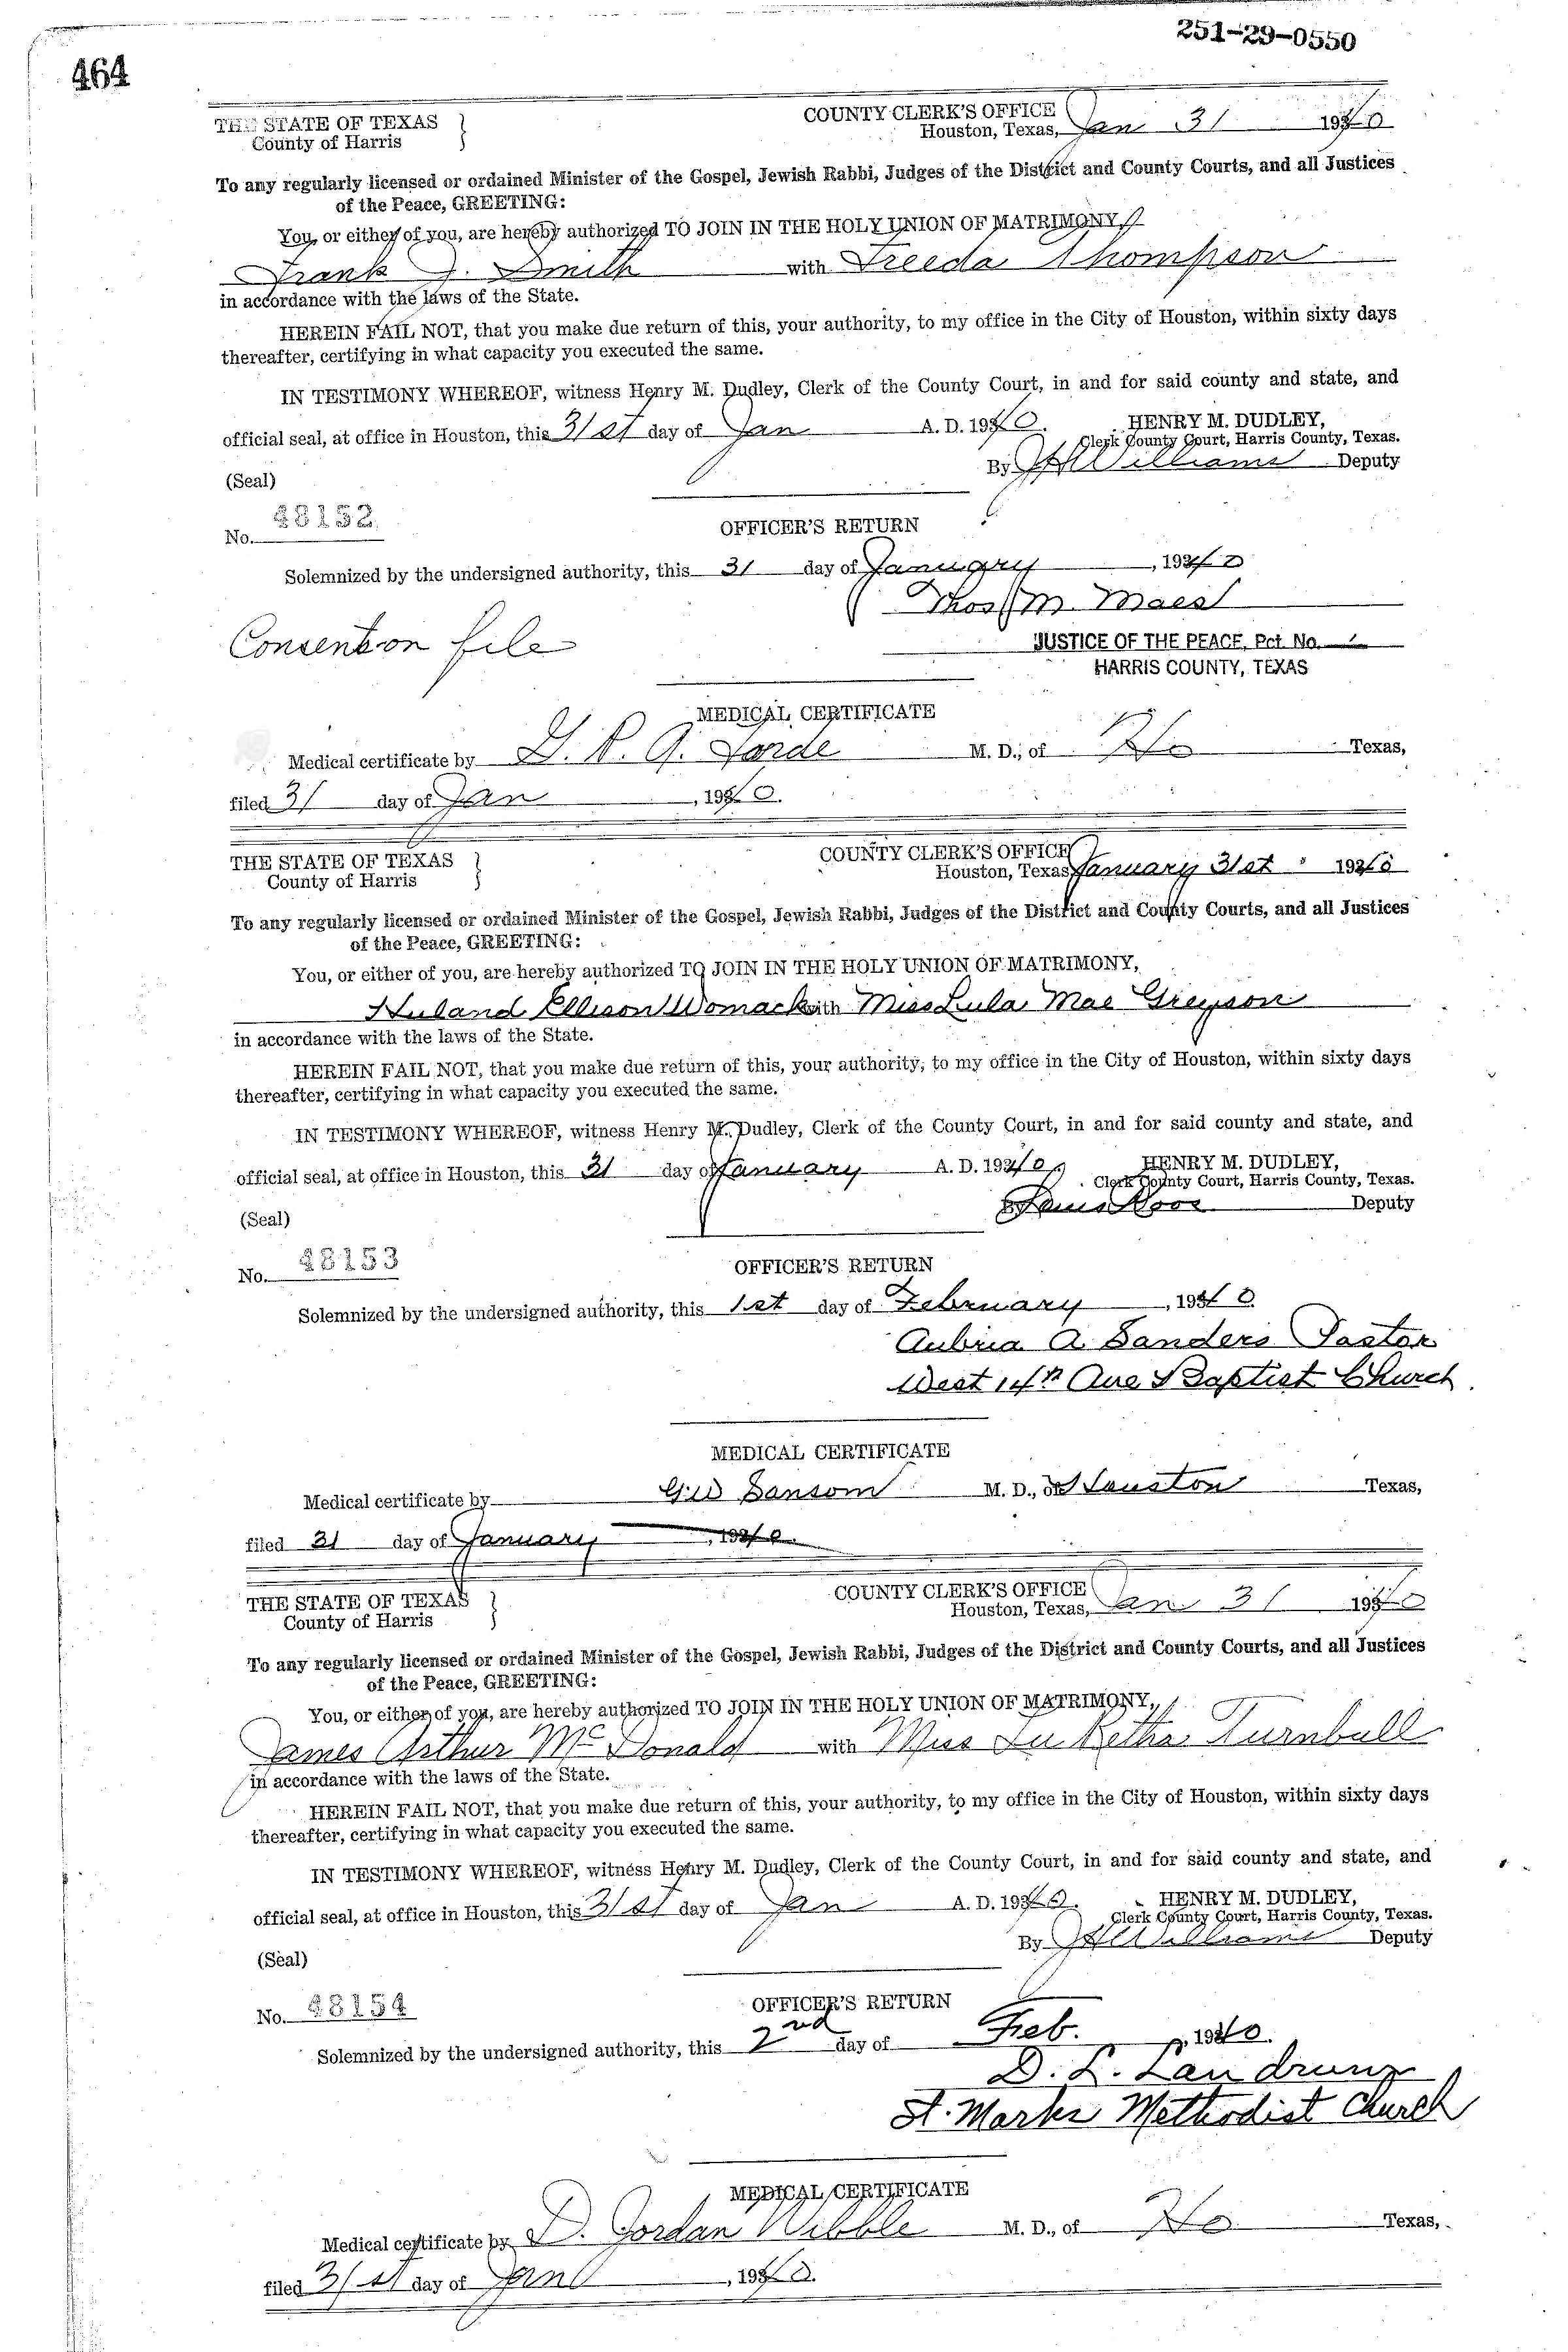 251-29-0550
464
THE STATE OF TEXAS
County of Harris
COUNTY CLERK'S OFFICE
Houston, Texas, Jan 31 1940
To any regularly licensed or ordained Minister of the Gospel, Jewish Rabbi, Judges of the District and County Courts, and all Justices
of the Peace, GREETING:
You, or either of you, are hereby authorized TO JOIN IN THE HOLY UNION OF MATRIMONY,
Frank J. Smith with Freeda Thompson
in accordance with the laws of the State.
HEREIN FAIL NOT, that you make due return of this, your authority, to my office in the City of Houston, within sixty days
thereafter, certifying in what capacity you executed the same.
IN TESTIMONY WHEREOF, witness Henry M. Dudley, Clerk of the County Court, in and for said county and state, and
official seal, at office in Houston, this 31st day of Jan A. D. 1940. HENRY M. DUDLEY,
Clerk County Court, Harris County, Texas.
By Williams Deputy
(Seal)
No. 48152
OFFICER'S RETURN
Solemnized by the undersigned authority, this 31 day of January, 1940
Thos M. Maes
Consent on file
JUSTICE OF THE PEACE, Pct. No. 1
HARRIS COUNTY, TEXAS
MEDICAL CERTIFICATE
Medical certificate by M. D., of Ho Texas,
filed 31 day of Jan, 1940.
THE STATE OF TEXAS
County of Harris
COUNTY CLERK'S OFFICE
Houston, Texas January 31st 1940
To any regularly licensed or ordained Minister of the Gospel, Jewish Rabbi, Judges of the District and County Courts, and all Justices
of the Peace, GREETING:
You, or either of you, are hereby authorized TO JOIN IN THE HOLY UNION OF MATRIMONY,
Huland Ellison Womack with Miss Lula Mae Greyson
in accordance with the laws of the State.
HEREIN FAIL NOT, that you make due return of this, your authority, to my office in the City of Houston, within sixty days
thereafter, certifying in what capacity you executed the same.
IN TESTIMONY WHEREOF, witness Henry M. Dudley, Clerk of the County Court, in and for said county and state, and
official seal, at office in Houston, this 31 day of January A. D. 1940 HENRY M. DUDLEY,
Clerk County Court, Harris County, Texas.
Deputy
(Seal)
No. 48153
OFFICER'S RETURN
Solemnized by the undersigned authority, this 1st day of February, 1940
Aubria A. Sanders Pastor
West 14th Ave Baptist Church
MEDICAL CERTIFICATE
Medical certificate by GW Sansom M. D., of Houston Texas,
filed 31 day of January, 1940.
THE STATE OF TEXAS
County of Harris
COUNTY CLERK'S OFFICE
Houston, Texas, Jan 31 1940
To any regularly licensed or ordained Minister of the Gospel, Jewish Rabbi, Judges of the District and County Courts, and all Justices
of the Peace, GREETING:
You, or either of you, are hereby authorized TO JOIN IN THE HOLY UNION OF MATRIMONY,
James Arthur McDonald with Miss Lu Retha Turnbull
in accordance with the laws of the State.
HEREIN FAIL NOT, that you make due return of this, your authority, to my office in the City of Houston, within sixty days
thereafter, certifying in what capacity you executed the same.
IN TESTIMONY WHEREOF, witness Henry M. Dudley, Clerk of the County Court, in and for said county and state, and
official seal, at office in Houston, this 31st day of Jan A. D. 1940. HENRY M. DUDLEY,
Clerk County Court, Harris County, Texas.
By Williams Deputy
(Seal)
No. 48154
OFFICER'S RETURN
Solemnized by the undersigned authority, this 2nd day of Feb., 1940.
D. L. Landrum
St. Marks Methodist Church
MEDICAL CERTIFICATE
Medical certificate by D. Jordan Wibble M. D., of Ho Texas,
filed 31st day of Jan, 1940.